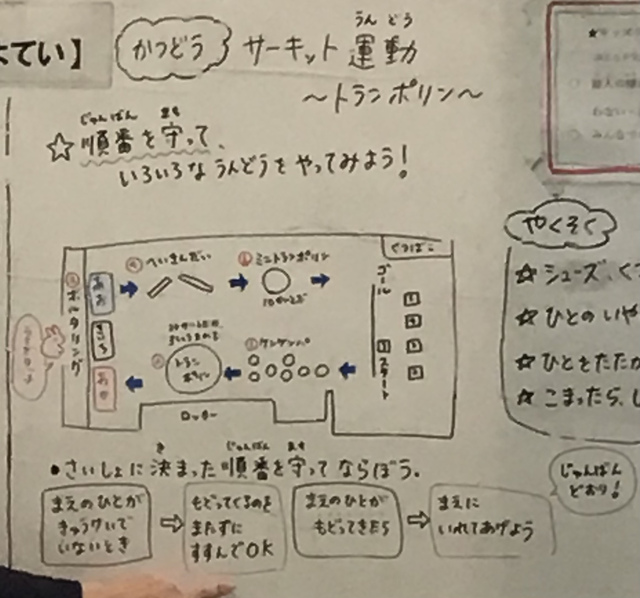 てい】
かつどう
サーキット運動
うんどう
～トランポリン～
じゅんばん まも
☆順番を守って、
いろいろなうんどうをやってみよう!
くつばこ
へいきんだい
ミニトランポリン
ゴール
スタート
ボルタリング
あお
きいろ
あか
トラン
ポリン
ケンケンパ
ロッカー
き じゅんばん まも
・さいしょに決まった順番を守ってならぼう。
まえのひとが
きゅうけいで
いないとき
⇒
もどってくるのを
またずに
すすんでOK
まえのひとが
もどってきたら
⇒
まえに
いれてあげよう
じゅんばん
どおり!
やくそく
☆シューズ、く
☆ひとのいや
☆ひとをたたか
☆こまったら、し